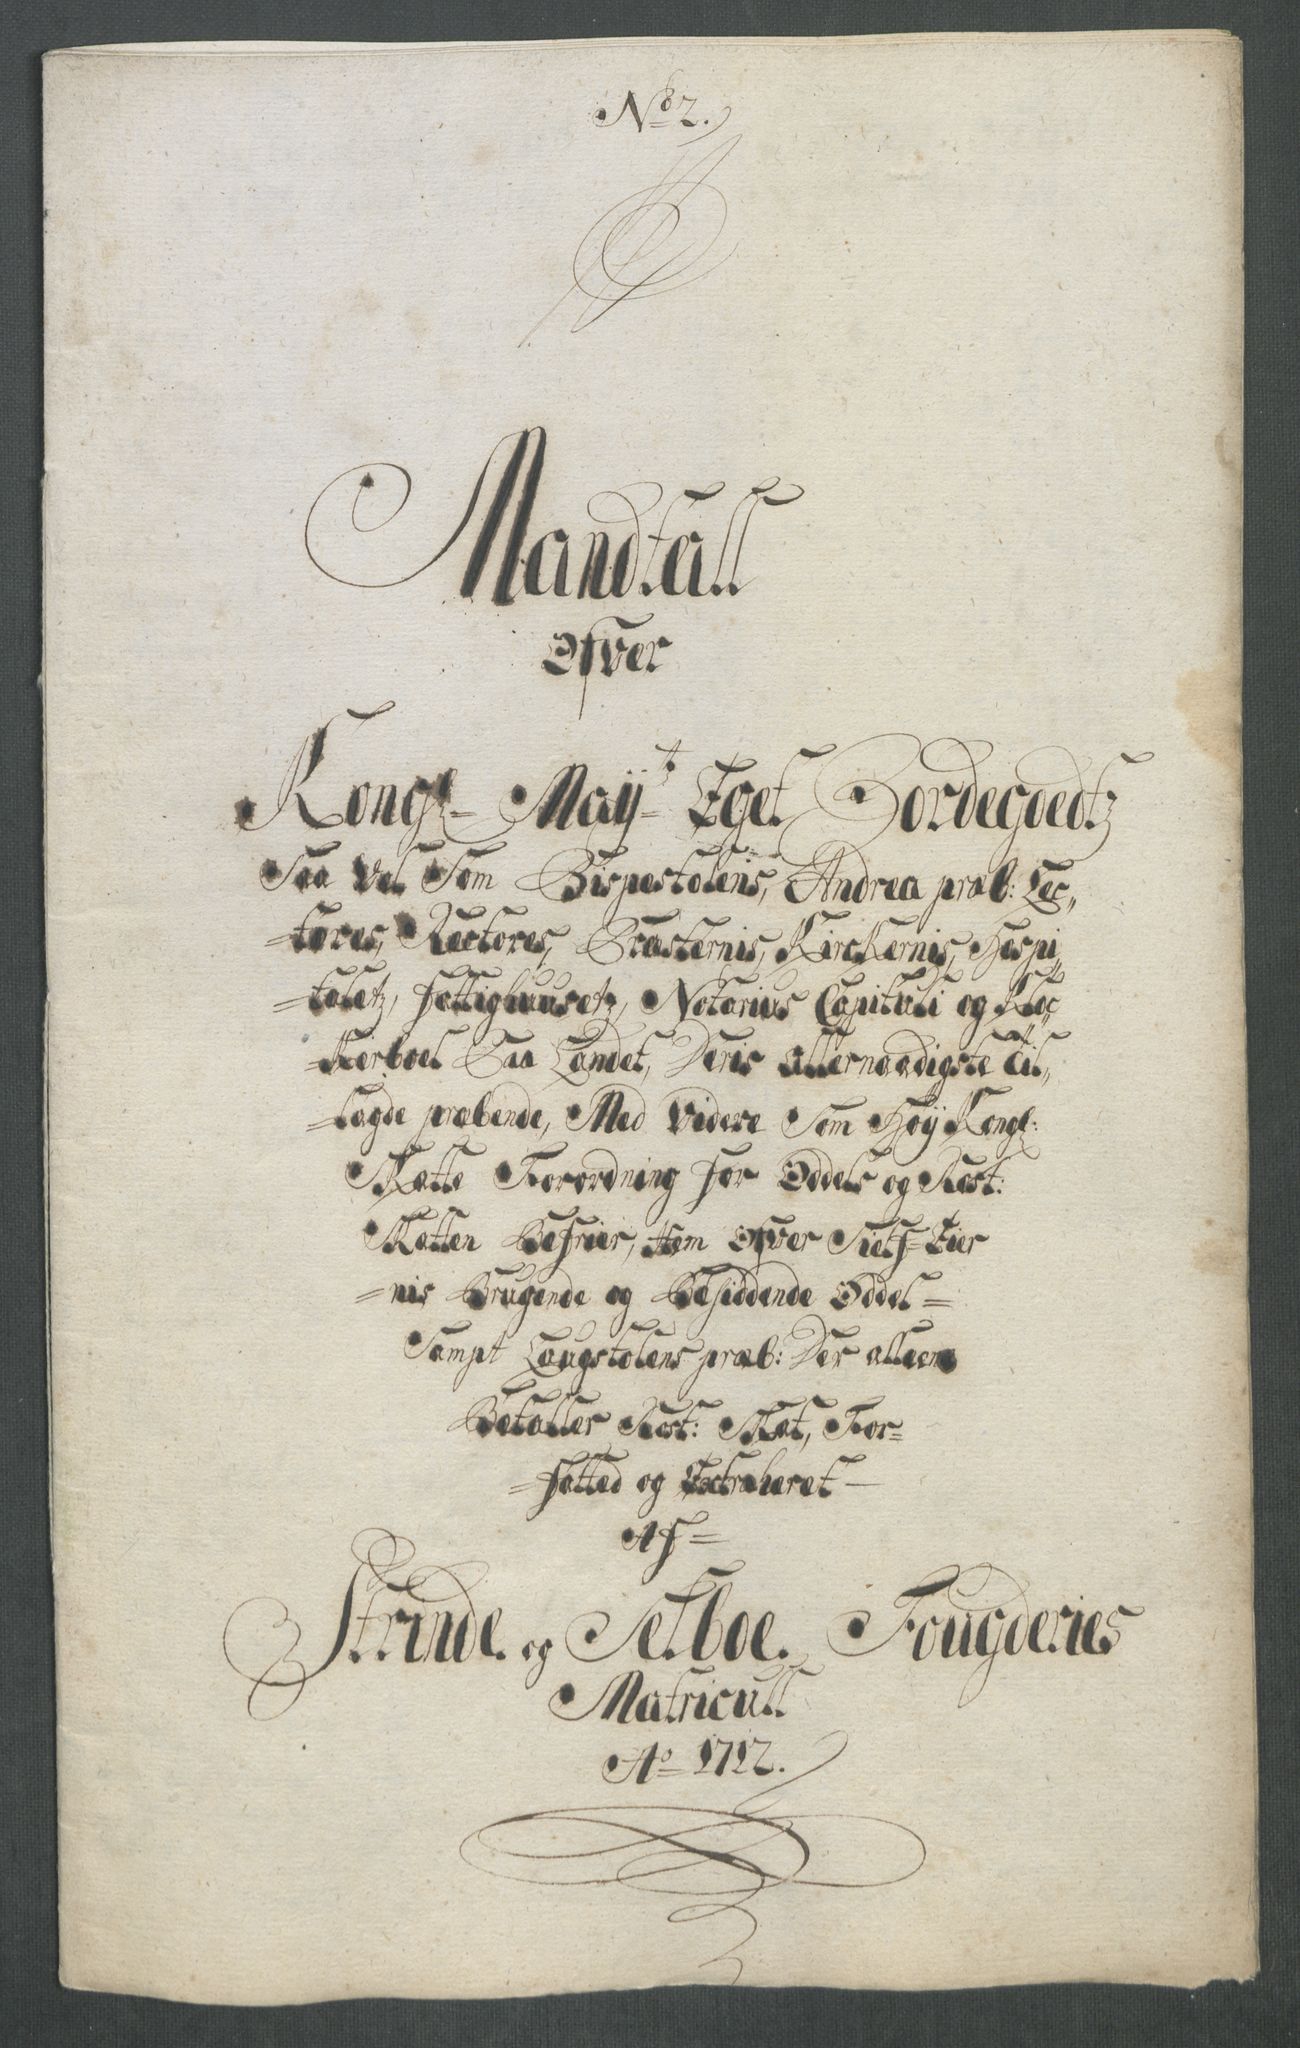 No 2.
Mandtall
Ofver
Kongl. Mayts Eget Bordegoedtz
Saa vel Som Bispestolens, Andrea præb: Lec,,
=tores, Rectores, Præsternis, Kirckernis, Hospi,,
=taletz, fattighuusetz, Notarius Capituli og Kloc
=kerboel Paa Landet, Deris Allernaadigste til,,
=lagde præbende, Med Videre Som Høy Kongl:
Skatte Forordning for Oddels og Rost:
Skatten Befrier, Item Ofver Sielf=Eier
=nis Brugende og Besiddende Oddel=
Sampt Laugstolens præb: Der alleene
Betaller Rost: Skat, For=
=fatted og Extraheret
Af=
Strinde og Selboe Fougderies
Matricull
Ao 1712.